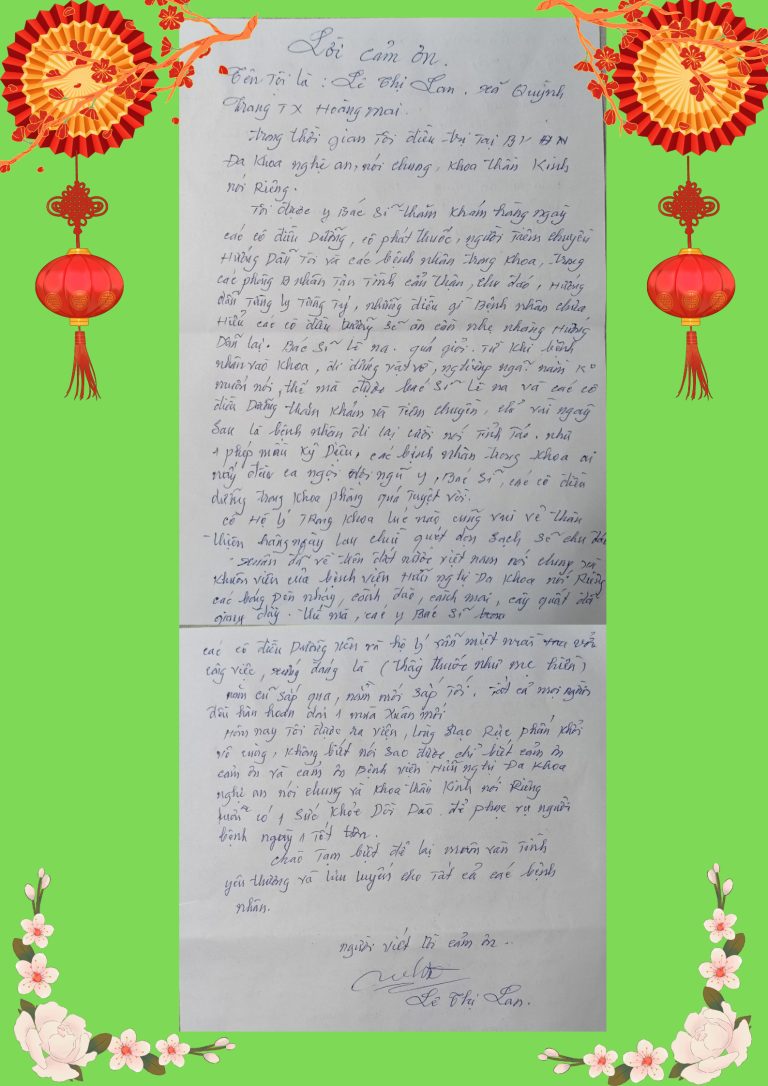 Lời cảm ơn.
Tên tôi là : Lê Thị Lan. xã Quỳnh
Trang TX Hoàng mai.
Trong thời gian Tôi điều trị Tại BV
Đa Khoa nghệ an, nói chung, Khoa thần Kinh
nói Riêng.
Tôi được y Bác Sĩ thăm Khám hàng ngày
các cô điều Dưỡng, cô phát thuốc, người Tiêm chuyền
Hướng Dẫn Tôi và các bệnh nhân trong Khoa, trong
các phòng B nhân Tận Tình cẩn thận, chu đáo, Hướng
dẫn Từng ly Từng Tý, những điều gì Bệnh nhân chưa
Hiểu các cô điều Dưỡng sẽ ân cần nhẹ nhàng Hướng
Dẫn lại. Bác Sĩ Lê na. quá giỏi. Từ Khi bệnh
nhân vào Khoa, đi đứng vật vờ, nghiêng ngã nằm K
muốn nói, thế mà được bác Sĩ Lê na và các cô
điều Dưỡng thăm Khám và Tiêm chuyền, chỉ vài ngày
Sau là bệnh nhân đi lại cười nói Tỉnh Táo. như
1 phép mầu Kỳ Diệu, các bệnh nhân trong Khoa ai
nấy đều ca ngợi đội ngũ y, Bác Sĩ, các cô điều
dưỡng trong Khoa phòng quá Tuyệt vời.
cô Hộ lý Trong Khoa lúc nào cũng vui vẻ thân
thiện hàng ngày lau chùi quét dọn Sạch Sẽ chu đáo
Xuân đã về trên đất nước việt nam nói chung và
Khuôn viên của bệnh viện Hữu nghị Đa Khoa nói Riêng
các bóng đèn nháy, cành đào, cành mai, cây quất đã
giăng đầy. Thế mà, các y Bác Sĩ
các cô điều Dưỡng viên và hộ lý vẫn miệt mài
công việc, xứng đáng là (thầy thuốc như mẹ hiền)
năm cũ Sắp qua, năm mới Sắp Tới. Tất cả mọi người
đều hân hoan đón 1 mùa Xuân mới
Hôm nay Tôi được ra viện, lòng Dạo Rực phấn Khởi
vô cùng, Không biết nói Sao được chỉ biết cảm ơn
cảm ơn và cảm ơn Bệnh viện Hữu nghị Đa Khoa
nghệ an nói chung và Khoa thần Kinh nói Riêng
luôn có 1 Sức Khỏe Dồi Dào. để phục vụ người
bệnh ngày 1 Tốt hơn.
chào Tạm biệt để lại muôn vàn Tình
yêu thương và lưu luyến cho Tất cả các bệnh
nhân.
người viết lời cảm ơn
Lê Thị Lan.